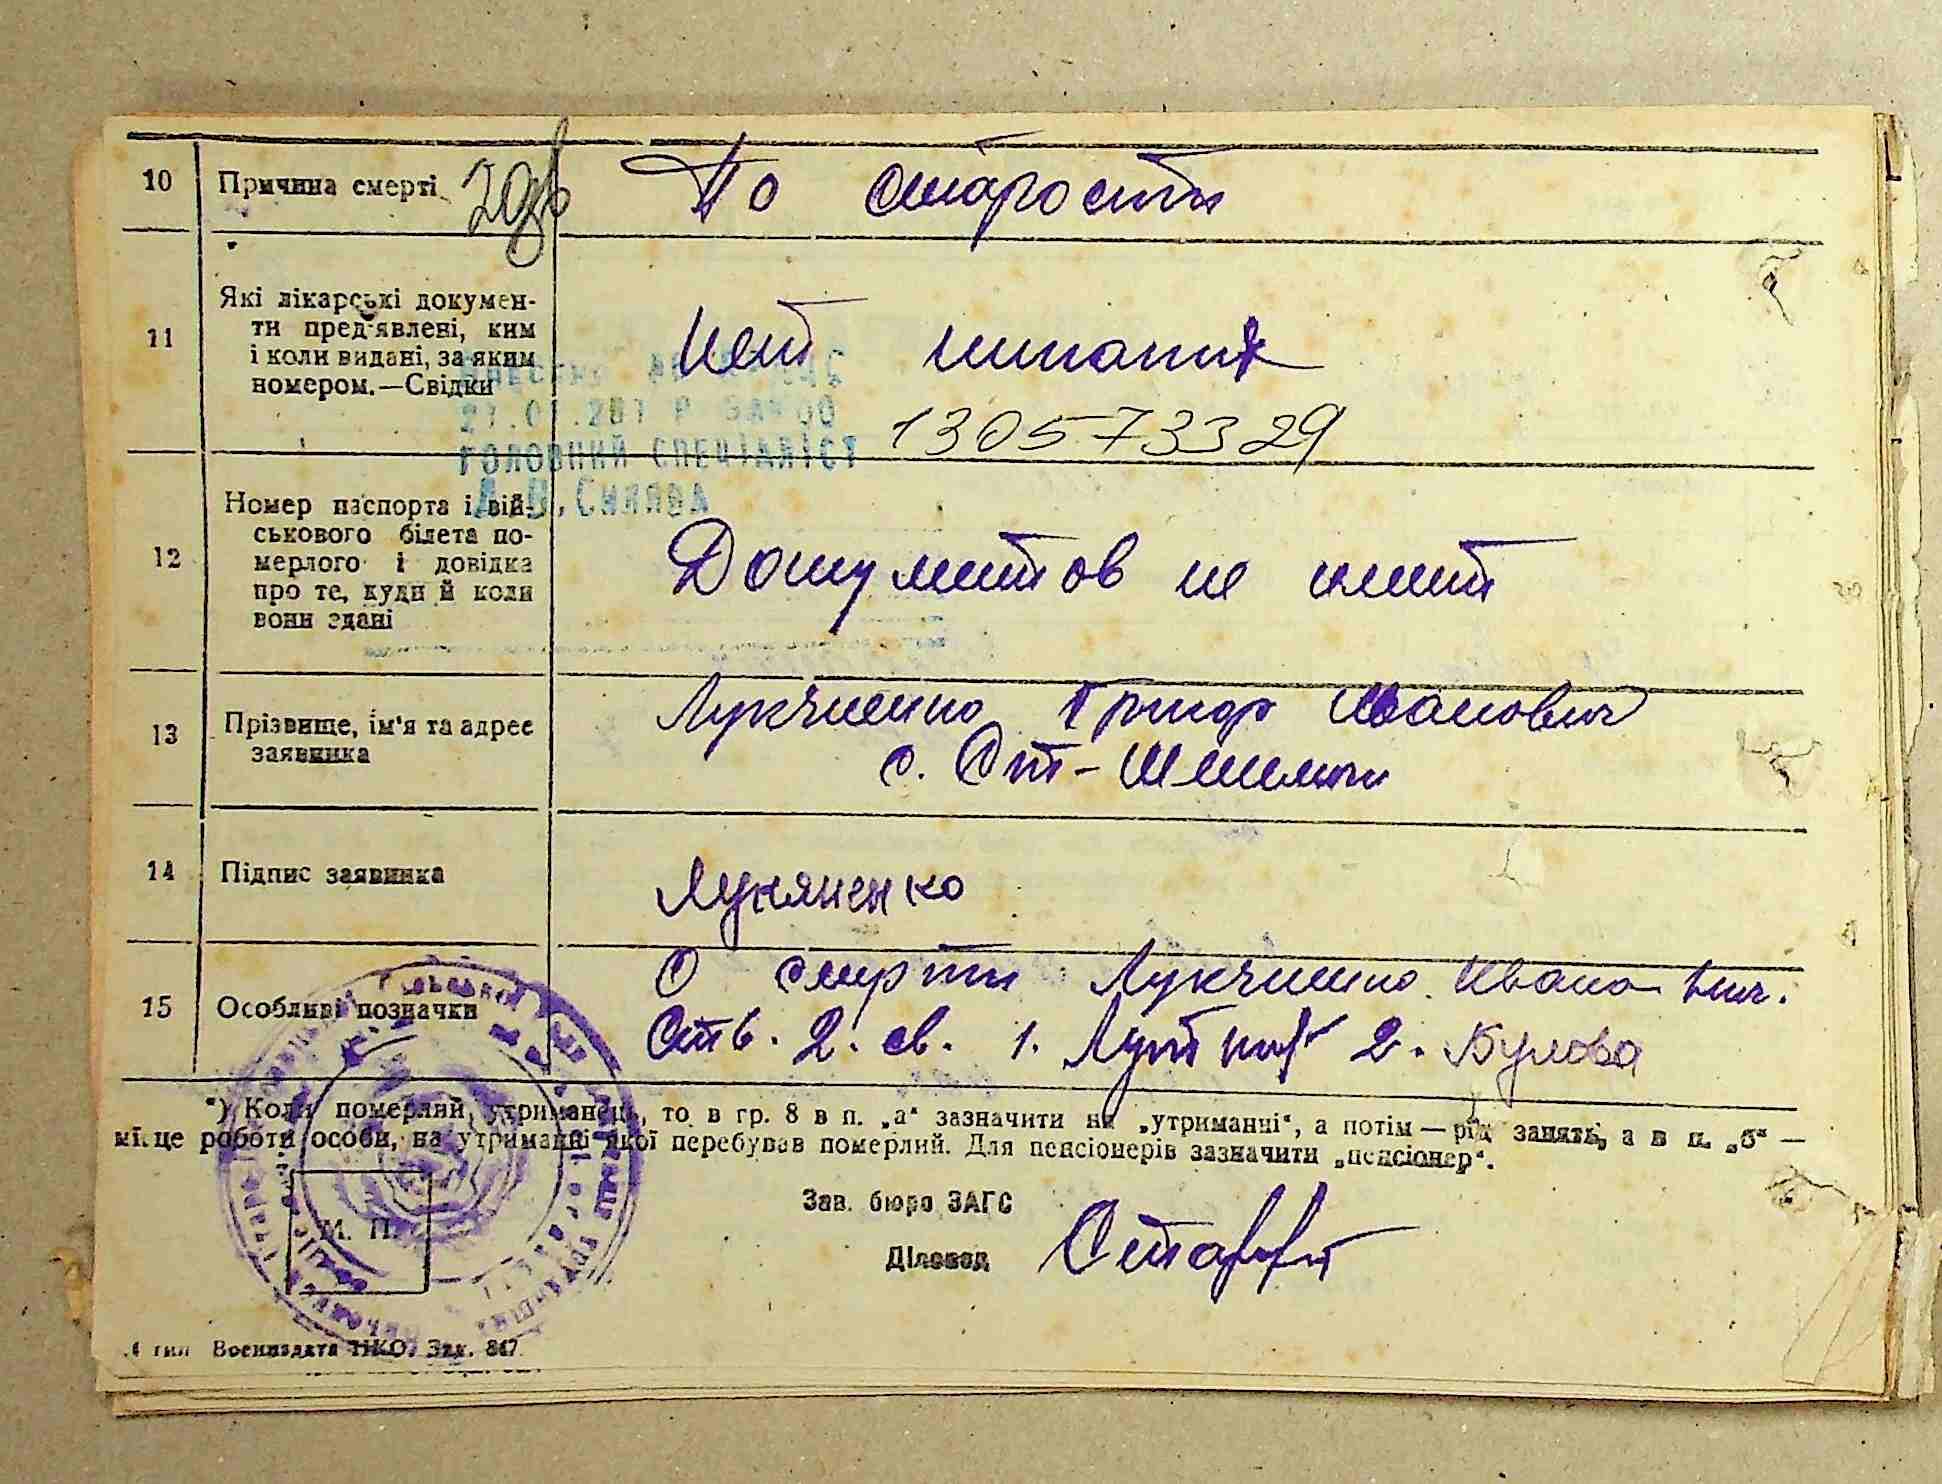 10 Причина смерті По старости
11 Які лікарські докумен-
ти пред'явлені, ким
і коли видані, за яким
номером.—Свідки
Нет никаких
130573329
ГОЛОВНИЙ СПЕЦІАЛІСТ
12 Номер паспорта і вій-
ськового білета по-
мерлого і довідка
про те, куди й коли
вони здані
Документов не имеит
13 Прізвище, ім'я та адрес
заявника
Лукяненко Григор Иванович
14 Підпис заявника Лукяненко
15 Особливі позначки
О смерти Лукяненко Ивана
2. св. 1. 2.
*) Коли померлий, утриманець, то в гр. 8 в п. „а“ зазначити на „утриманні“, а потім — рід занять, а в п. „б“ —
місце роботи особи, на утриманні якої перебував померлий. Для пенсіонерів зазначити „пенсіонер“.
Зав. бюро ЗАГС
Діловод
М. П.
тип Воениздата НКО. Зак. 847